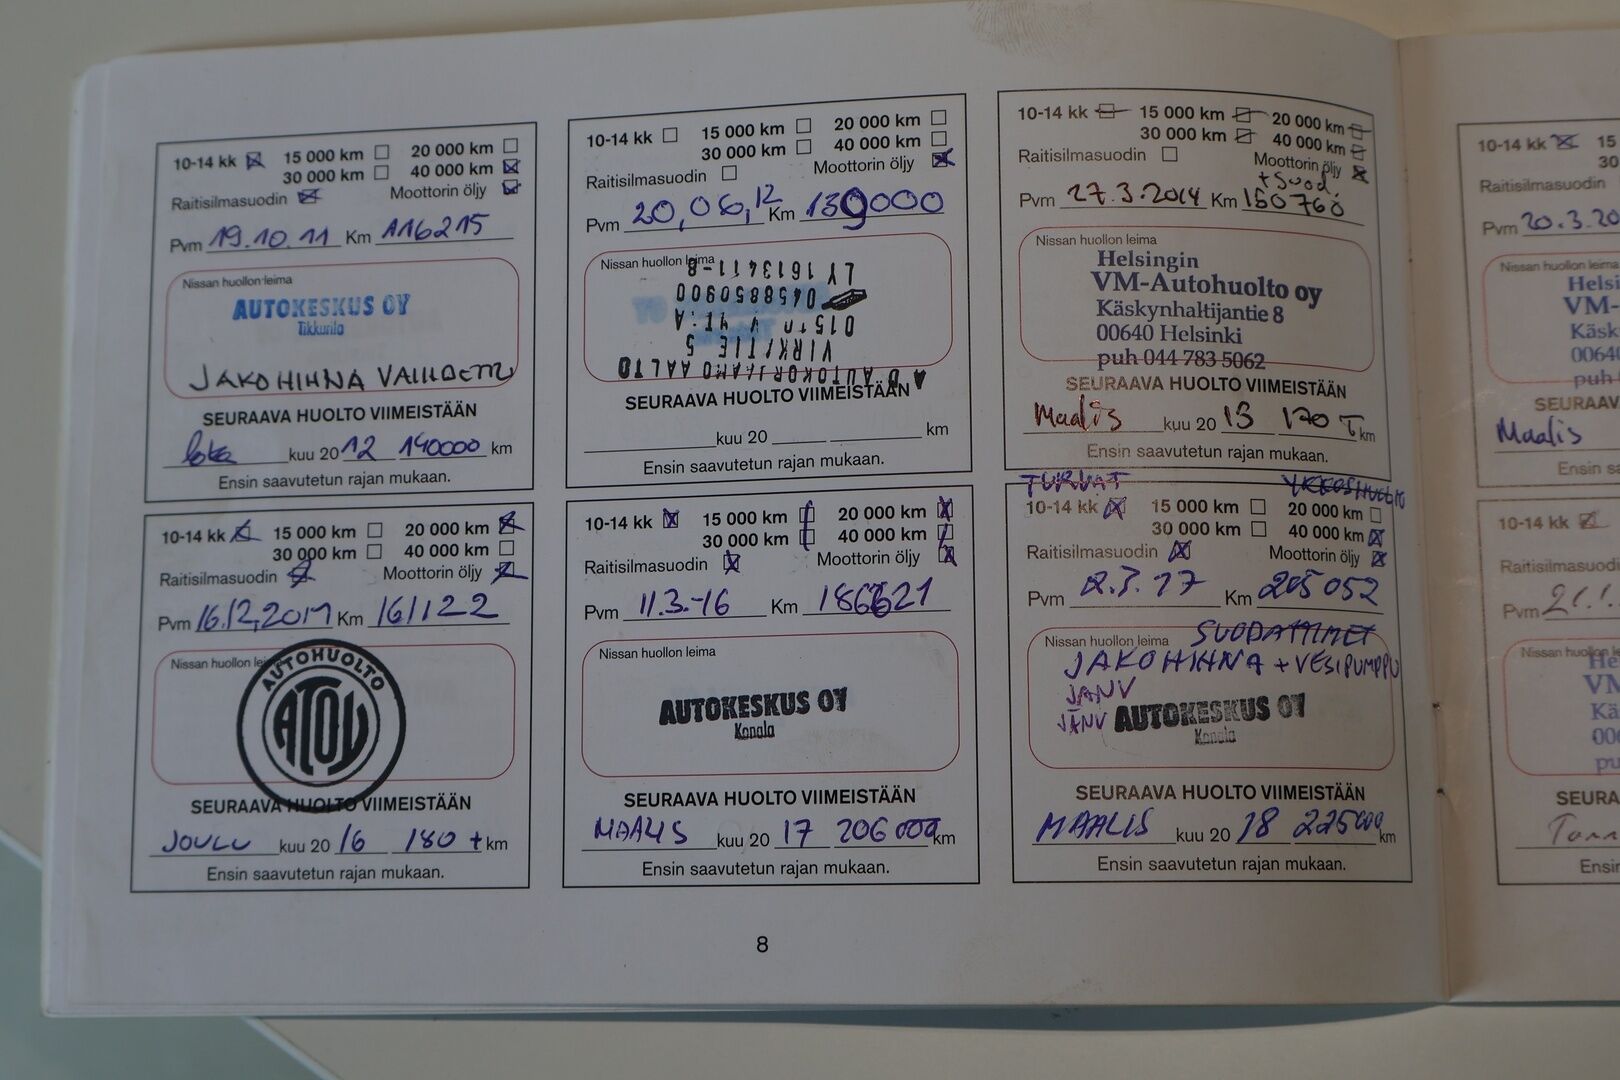 10-14 kk 15 000 km 20 000 km
30 000 km 40 000 km
Raitisilmasuodin Moottorin öljy
Pvm 19.10.11 Km 116215
Nissan huollon leima
AUTOKESKUS OY
Tikkurila
JAKOHIHNA VAIHDETTU
SEURAAVA HUOLTO VIIMEISTÄÄN
loka kuu 20 12 140000 km
Ensin saavutetun rajan mukaan.
10-14 kk 15 000 km 20 000 km
30 000 km 40 000 km
Raitisilmasuodin Moottorin öljy
Pvm 20,06,12 Km 139000
Nissan huollon leima
AUTOKORJAAMO AALTO
VIRKATIE 5
0458850900
LY 1613411-8
SEURAAVA HUOLTO VIIMEISTÄÄN
kuu 20 km
Ensin saavutetun rajan mukaan.
10-14 kk 15 000 km 20 000 km
30 000 km 40 000 km
Raitisilmasuodin Moottorin öljy
+ Suod.
Pvm 27.3.2014 Km 150760
Nissan huollon leima
Helsingin
VM-Autohuolto oy
Käskynhaltijantie 8
00640 Helsinki
puh 044 783 5062
SEURAAVA HUOLTO VIIMEISTÄÄN
Maalis kuu 20 13 170 T km
Ensin saavutetun rajan mukaan.
10-14 kk 15 000 km 20 000 km
30 000 km 40 000 km
Raitisilmasuodin Moottorin öljy
Pvm 16.12.2014 Km 161122
Nissan huollon leima
AUTOHUOLTO
ATOY
SEURAAVA HUOLTO VIIMEISTÄÄN
JOULU kuu 20 16 180 t km
Ensin saavutetun rajan mukaan.
10-14 kk 15 000 km 20 000 km
30 000 km 40 000 km
Raitisilmasuodin Moottorin öljy
Pvm 11.3.-16 Km 186621
Nissan huollon leima
AUTOKESKUS OY
Konala
SEURAAVA HUOLTO VIIMEISTÄÄN
MAALIS kuu 20 17 206 000 km
Ensin saavutetun rajan mukaan.
TURVAT YKKÖSHUOLTO
10-14 kk 15 000 km 20 000 km
30 000 km 40 000 km
Raitisilmasuodin Moottorin öljy
Pvm 2.3.17 Km 205 052
Nissan huollon leima SUODATTIMET
JAKOHIHNA + VESIPUMPPU
JANV
JÄNV AUTOKESKUS OY
Konala
SEURAAVA HUOLTO VIIMEISTÄÄN
MAALIS kuu 20 18 225000 km
Ensin saavutetun rajan mukaan.
8
10-14 kk 15
30
Raitisilmasuodin
Pvm 20.3.20
Nissan huollon leima
Helsi
VM-
Käsk
00640
puh
SEURAAV
Maalis
Ensin sa
10-14 kk
Raitisilmasuodin
Pvm
Nissan huollon leima
He
VM
Kä
006
pu
SEURA
Ensin